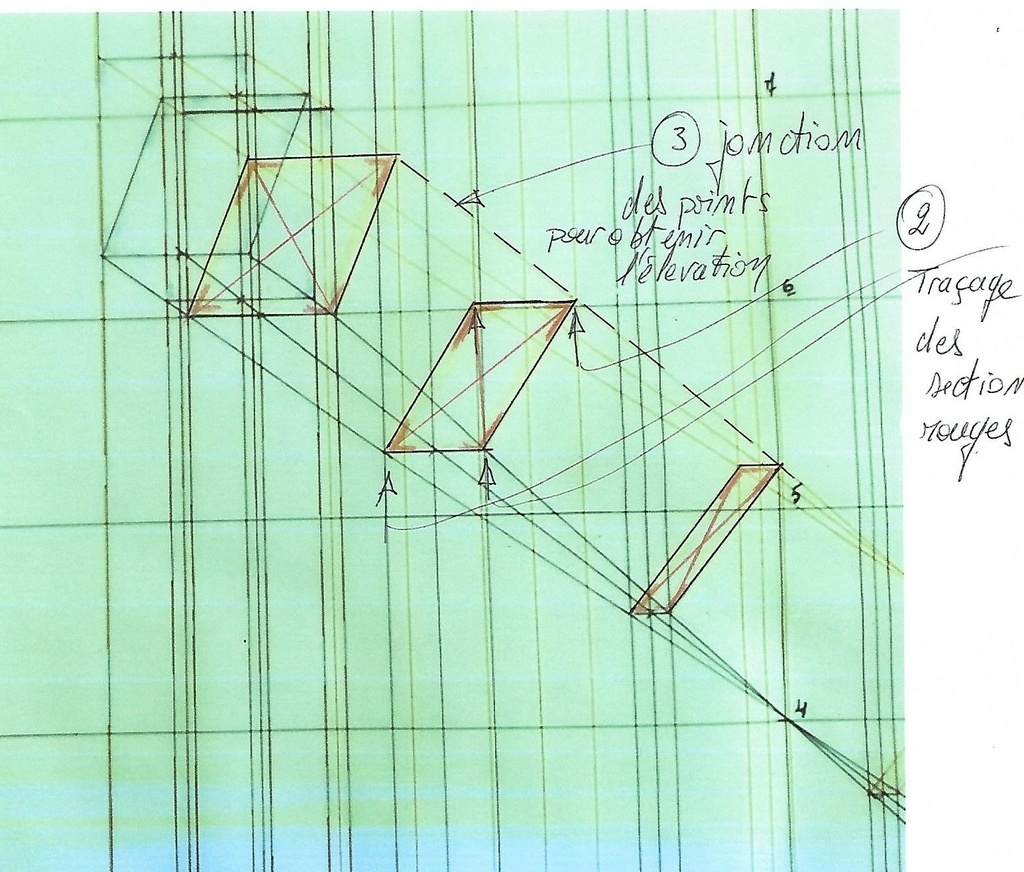 7
3 jonction
des points
pour obtenir
l'élevation
6
2
Traçage
des
section
rouges
5
4